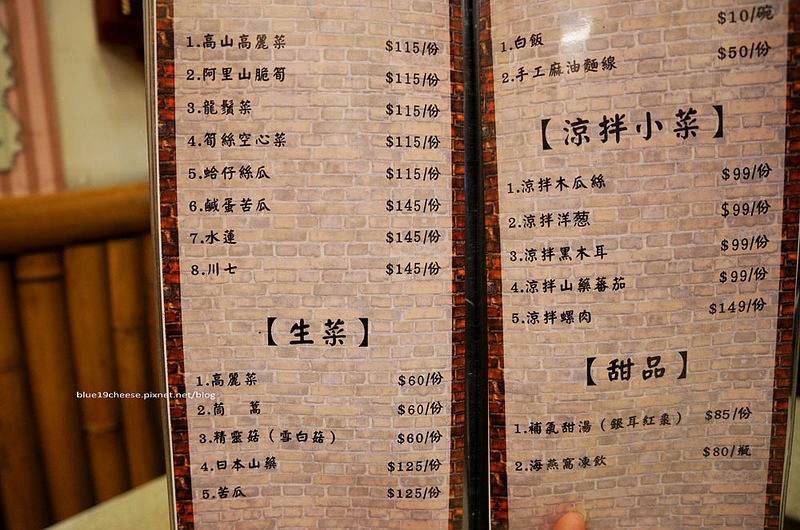 1.高山高麗菜 $115/份
2.阿里山脆筍 $115/份
3.龍鬚菜 $115/份
4.筍絲空心菜 $115/份
5.蛤仔絲瓜 $115/份
6.鹹蛋苦瓜 $145/份
7.水蓮 $145/份
8.川七 $145/份
【生菜】
1.高麗菜 $60/份
2.茼 蒿 $60/份
3.精靈菇(雪白菇) $60/份
4.日本山藥 $125/份
5.苦瓜 $125/份
blue19cheese.pixnet.net/blog
1.白飯 $10/碗
2.手工麻油麵線 $50/份
【涼拌小菜】
1.涼拌木瓜絲 $99/份
2.涼拌洋葱 $99/份
3.涼拌黑木耳 $99/份
4.涼拌山藥蕃茄 $99/份
5.涼拌螺肉 $149/份
【甜品】
1.補氣甜湯(銀耳紅棗) $85/份
2.海燕窩凍飲 $80/瓶